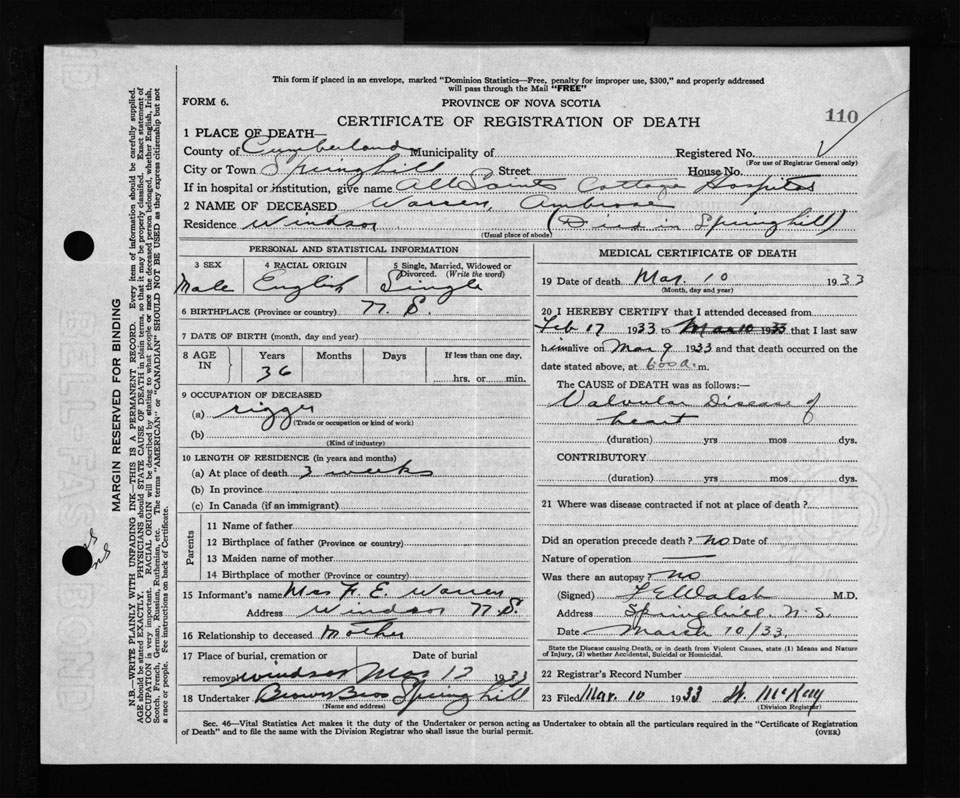 This form if placed in an envelope, marked "Dominion Statistics—Free, penalty for improper use, $300," and properly addressed
will pass through the Mail "FREE"
FORM 6.
PROVINCE OF NOVA SCOTIA
110
CERTIFICATE OF REGISTRATION OF DEATH
1 PLACE OF DEATH—
County of Cumberland Municipality of Registered No.
(For use of Registrar General only)
City or Town Springhill Street House No.
If in hospital or institution, give name All Saints Cottage Hospital
2 NAME OF DECEASED Warren, Ambrose
Residence Windsor (Died in Springhill)
(Usual place of abode)
PERSONAL AND STATISTICAL INFORMATION
3 SEX 4 RACIAL ORIGIN 5 Single, Married, Widowed or
Divorced. (Write the word)
Male English Single
6 BIRTHPLACE (Province or country) N. S.
7 DATE OF BIRTH (month, day and year)
8 AGE IN Years Months Days If less than one day,
36 hrs. or min.
9 OCCUPATION OF DECEASED
(a) rigger
(Trade or occupation or kind of work)
(b)
(Kind of industry)
10 LENGTH OF RESIDENCE (in years and months)
(a) At place of death 3 weeks
(b) In province
(c) In Canada (if an immigrant)
Parents
11 Name of father
12 Birthplace of father (Province or country)
13 Maiden name of mother
14 Birthplace of mother (Province or country)
15 Informant's name Mrs F. E. Warren
Address Windsor N.S
16 Relationship to deceased Mother
17 Place of burial, cremation or Date of burial
removal Windsor Mar 12 1933
18 Undertaker Brown Bros Springhill
(Name and address)
MEDICAL CERTIFICATE OF DEATH
19 Date of death Mar. 10 1933
(Month, day and year)
20 I HEREBY CERTIFY that I attended deceased from
Feb 17 1933 to Mar 10 1933 that I last saw
him alive on Mar 9 1933 and that death occurred on the
date stated above, at 6:00 a. m.
The CAUSE OF DEATH was as follows:—
Valvular Disease of
heart
(duration) yrs mos dys.
CONTRIBUTORY
(duration) yrs mos dys.
21 Where was disease contracted if not at place of death?
Did an operation precede death? no Date of
Nature of operation —
Was there an autopsy? no
(Signed) F E Walsh M.D.
Address Springhill, N. S.
Date March 10/33.
State the Disease causing Death, or in death from Violent Causes, state (1) Means and Nature
of Injury, (2) whether Accidental, Suicidal or Homicidal.
22 Registrar's Record Number
23 Filed Mar. 10 1933 H. McKay
(Division Registrar)
Sec. 46—Vital Statistics Act makes it the duty of the Undertaker or person acting as Undertaker to obtain all the particulars required in the "Certificate of Registration
of Death" and to file the same with the Division Registrar who shall issue the burial permit.
(OVER)
MARGIN RESERVED FOR BINDING
N.B.—WRITE PLAINLY WITH UNFADING INK—THIS IS A PERMANENT RECORD. Every item of information should be carefully supplied.
AGE should be stated EXACTLY. PHYSICIANS should STATE CAUSE OF DEATH in plain terms, so that it may be properly classified. Exact statement of
OCCUPATION is very important. RACIAL ORIGIN will be described by stating to what people or race the deceased person belonged, whether English, Irish,
Scotch, French, German, Russian, Ruthenian, etc. The terms "AMERICAN" or "CANADIAN" SHOULD NOT BE USED as they express citizenship but not
a race or people. See instructions on back of Certificate.